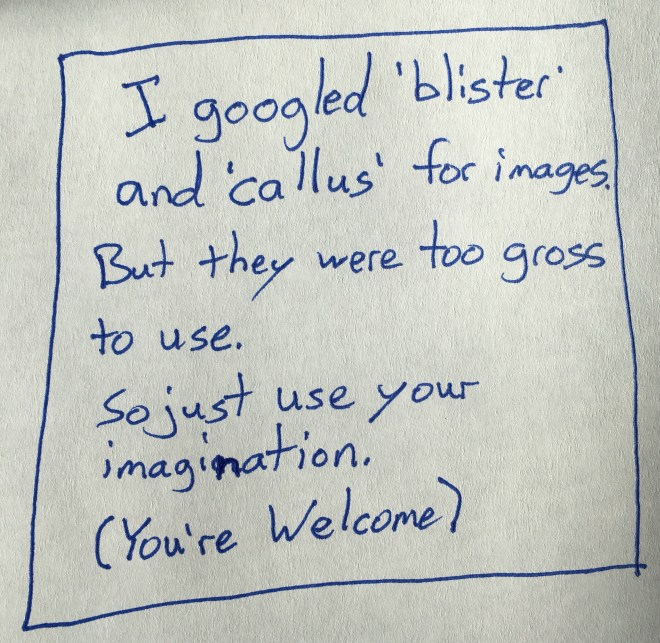 I googled 'blister'
and 'callus' for images.
But they were too gross
to use.
So just use your
imagination.
(You're Welcome)